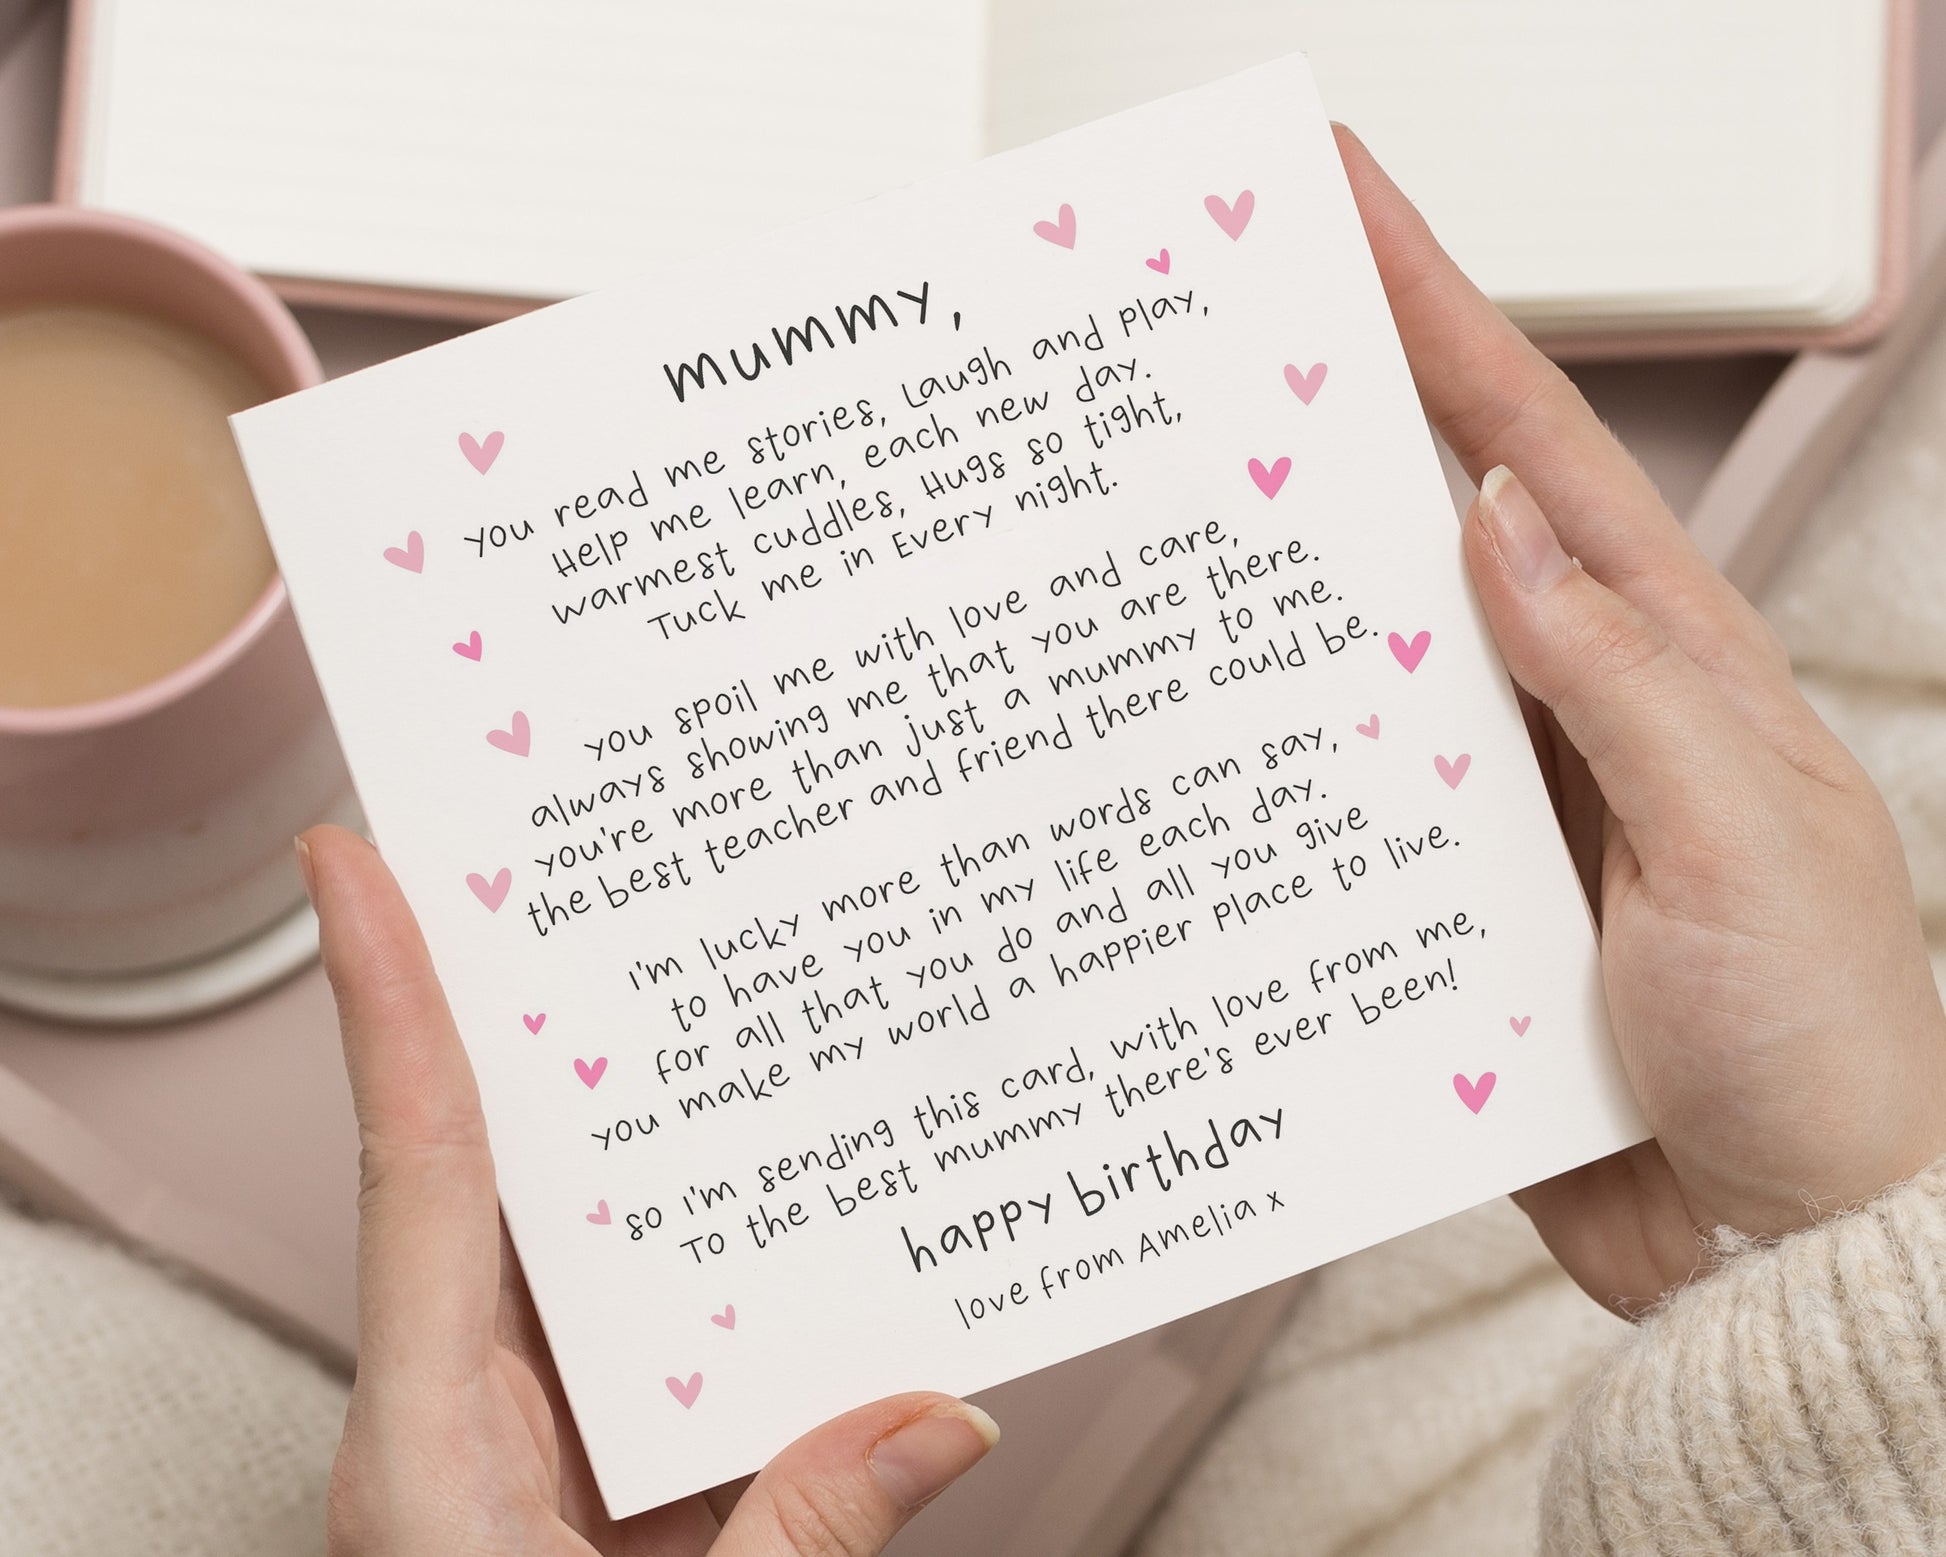 mummy,
you read me stories, Laugh and Play,
Help me learn, each new day.
warmest cuddles, Hugs so tight,
Tuck me in Every night.
you spoil me with love and care,
always showing me that you are there.
you're more than just a mummy to me.
the best teacher and friend there could be.
I'm lucky more than words can say,
to have you in my life each day.
for all that you do and all you give
you make my world a happier place to live.
so I'm sending this card, with love from me,
To the best mummy there's ever been!
happy birthday
love from Amelia x